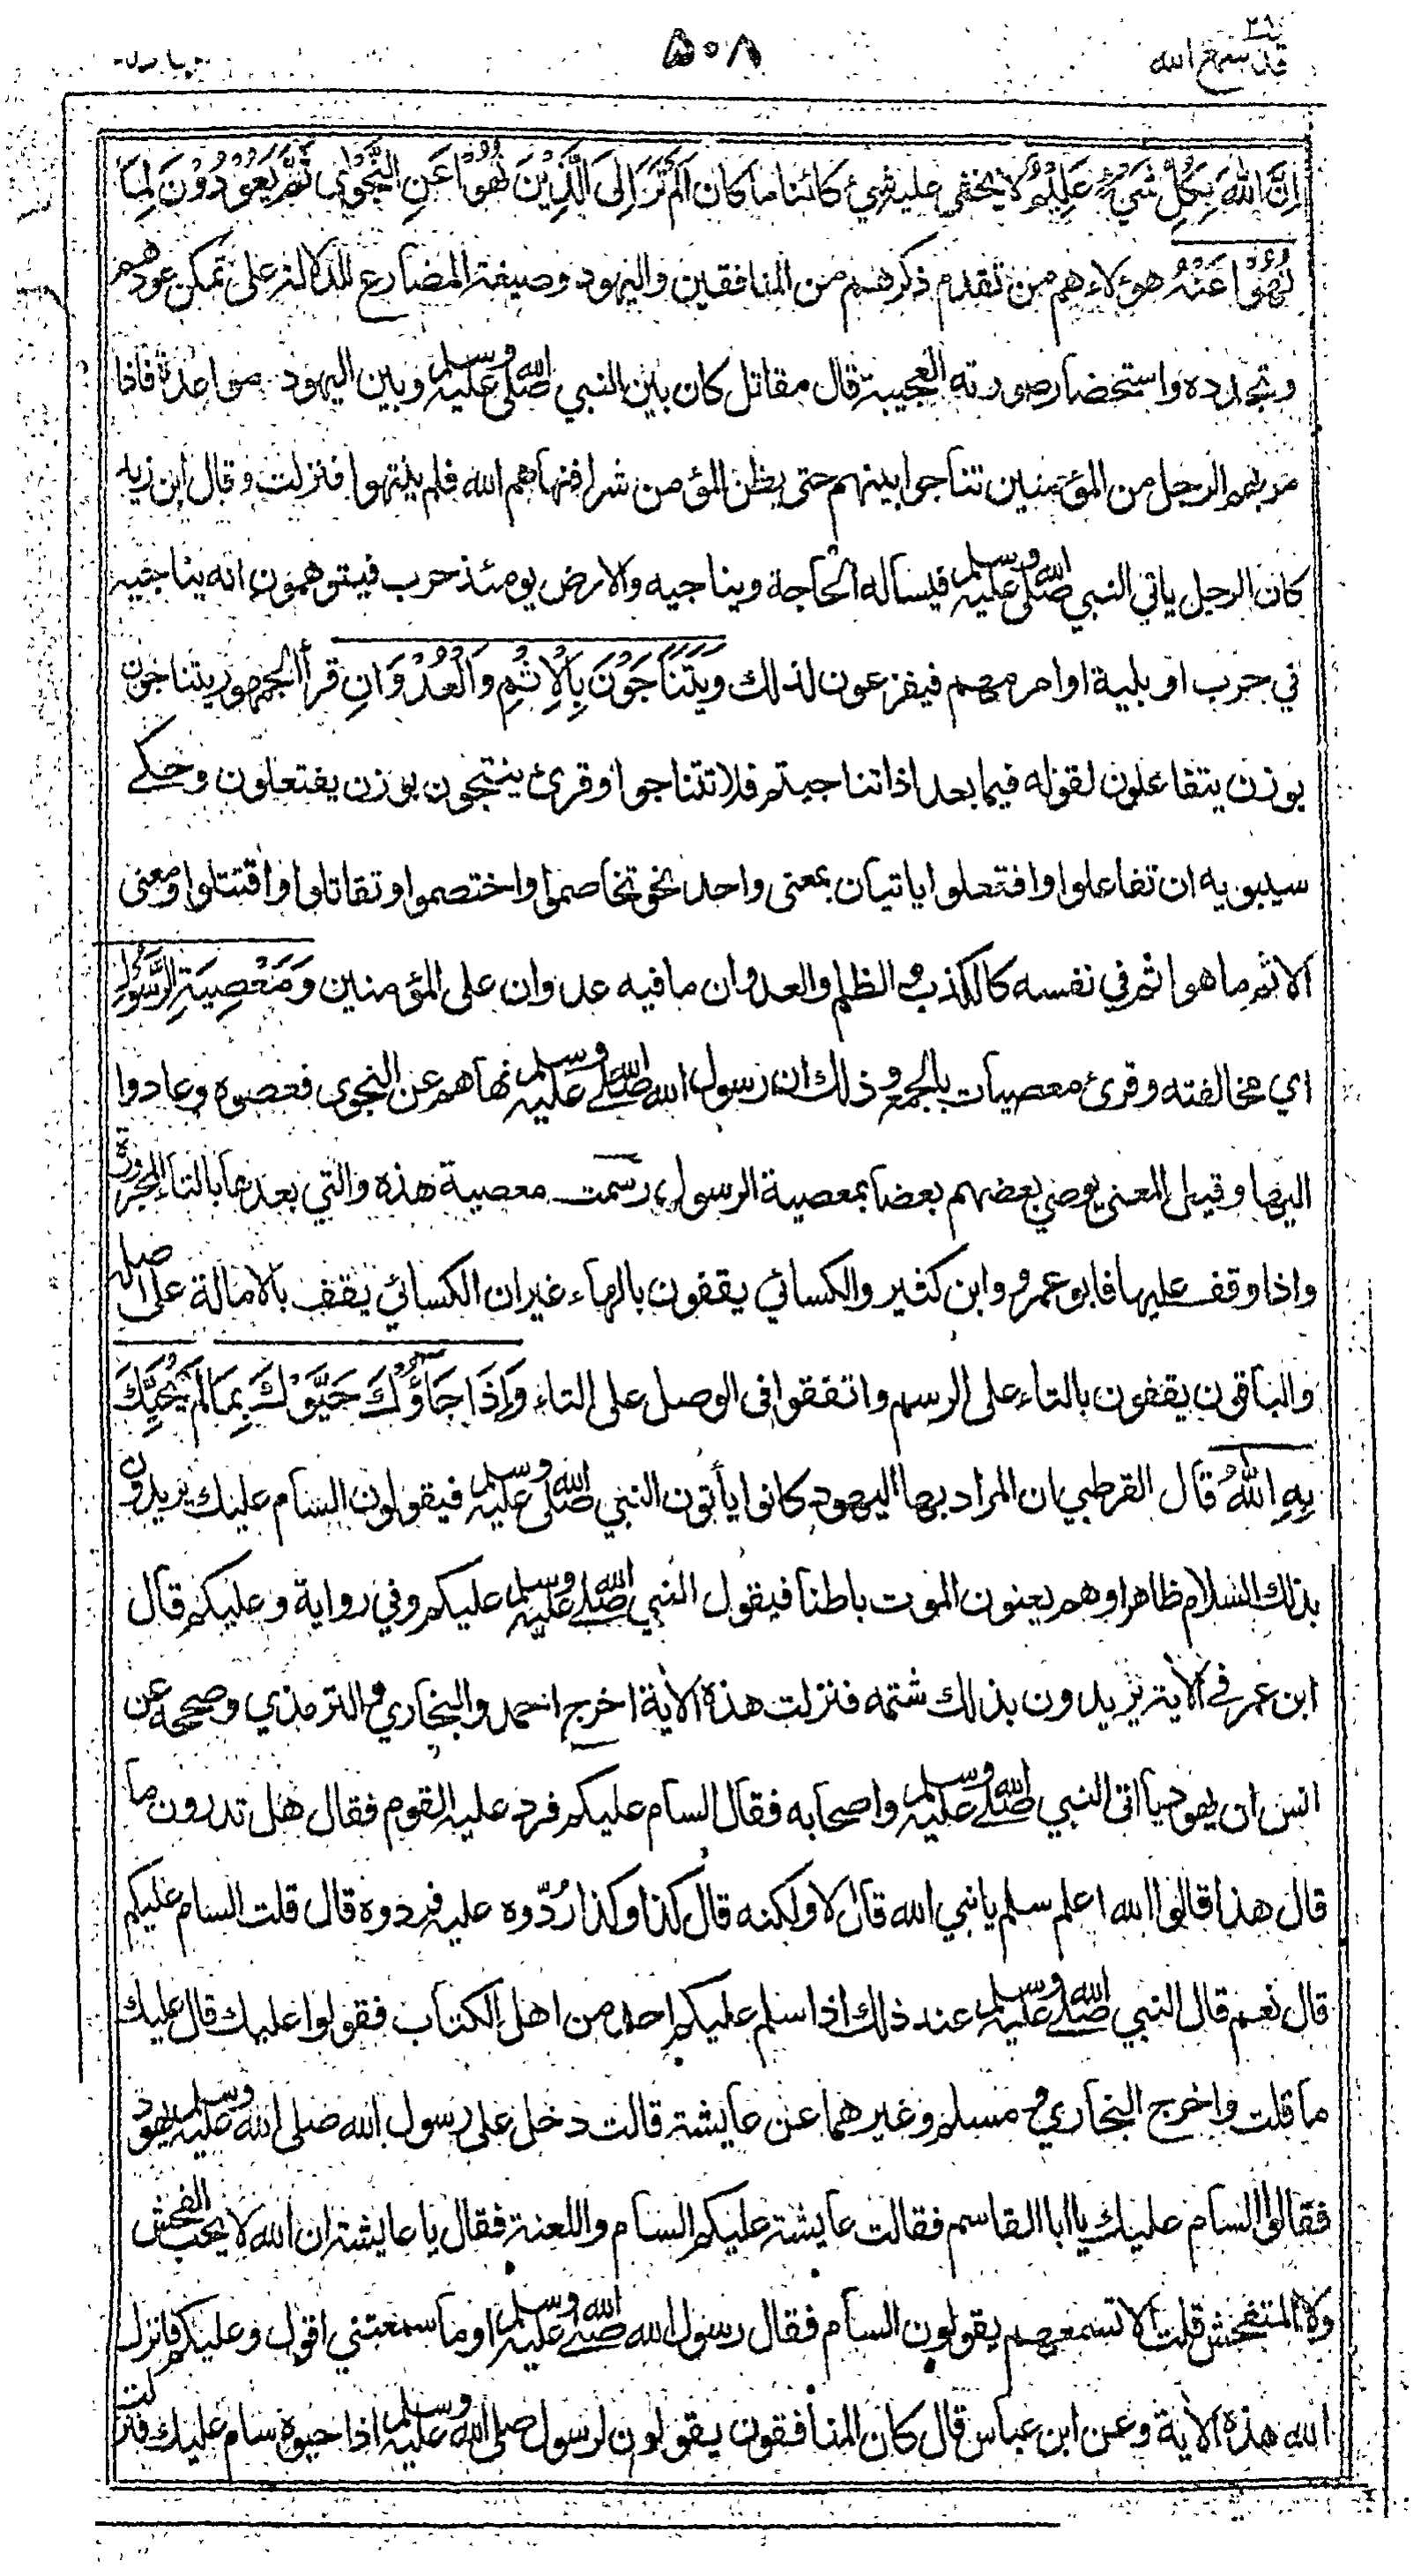 ٢٨
قد سمع الله
٥٠٨
إِنَّ اللَّهَ بِكُلِّ شَيْءٍ عَلِيْمٌ لا يخفى عليه شيئ كائنا ما كان اَلَمْ تَرَ اِلَى الَّذِيْنَ نُهُوْا عَنِ النَّجْوٰى ثُمَّ يَعُوْدُوْنَ لِمَا
نُهُوْا عَنْهُ هؤلاء هم من تقدم ذكرهم من المنافقين واليهود وصيغة المضارع للدلالة على تمكن عودهم
وتجدده واستحضار صورته العجيبة قال مقاتل كان بين النبي صلى الله عليه وسلم وبين اليهود مواعدة فاذا
مر بهم الرجل من المؤمنين تناجوا بينهم حتى يظن المؤمن شرا فنهاهم الله فلم ينتهوا فنزلت وقال ابن زيد
كان الرجل ياتي النبي صلى الله عليه وسلم فيسأله الحاجة ويناجيه والارض يومئذ حرب فيتوهمون انه يناجيه
في حرب او بلية او امر مهم فيفزعون لذلك وَيَتَنَاجَوْنَ بِالْاِثْمِ وَالْعُدْوَانِ قرأ الجمهور يتناجون
بوزن يتفاعلون لقوله فيما بعد اذا تناجيتم فلا تتناجوا وقرئ ينتجون بوزن يفتعلون وحكے
سيبويه ان تفاعلوا وافتعلوا ياتيان بمعنى واحد نحو تخاصموا واختصموا وتقاتلوا واقتتلوا ومعنى
الاثم ما هو اثم في نفسه كالكذب والظلم والعدوان ما فيه عدوان على المؤمنين وَمَعْصِيَةِ الرَّسُوْلِ
اي مخالفته وقرئ معصيات بالجمع وذلك ان رسول الله صلى الله عليه وسلم نهاهم عن النجوى فعصوه وعادوا
اليها وقيل المعنى يوصي بعضهم بعضا بمعصية الرسول، رسمت معصية هذه والتي بعدها بالتاء المجرورة
واذا وقف عليها فابو عمرو وابن كثير والكسائي يقفون بالهاء غير ان الكسائي يقف بالامالة على اصله
والباقون يقفون بالتاء على الرسم واتفقوا في الوصل على التاء وَاِذَا جَاؤُوْكَ حَيَّوْكَ بِمَا لَمْ يُحَيِّكَ
بِهِ اللّٰهُ قال القرطبي ان المراد بها اليهود كانوا يأتون النبي صلى الله عليه وسلم فيقولون السام عليك يريدون
بذلك السلام ظاهرا وهم يعنون الموت باطنا فيقول النبي صلى الله عليه وسلم عليكم وفي رواية وعليكم قال
ابن عمر في الآية يريدون بذلك شتمه فنزلت هذه الآية اخرج احمد والبخاري والترمذي وصححه عن
انس ان يهوديا اتى النبي صلى الله عليه وسلم واصحابه فقال السام عليكم فرد عليه القوم فقال هل تدرون ما
قال هذا قالوا الله اعلم سلم يا نبي الله قال لا ولكنه قال كذا وكذا رُدّوه علي فردوه قال قلت السام عليكم
قال نعم قال النبي صلى الله عليه وسلم عند ذلك اذا سلم عليكم احد من اهل الكتاب فقولوا عليك قال عليك
ما قلت واخرج البخاري ومسلم وغيرهما عن عايشة قالت دخل على رسول الله صلى الله عليه وسلم يهود
فقالوا السام عليك يا ابا القاسم فقالت عايشة عليكم السام واللعنة فقال يا عايشة ان الله لا يحب الفحش
ولا المتفحش قلت الا تسمعهم يقولون السام فقال رسول الله صلى الله عليه وسلم او ما سمعتني اقول وعليكم فانزل
الله هذه الآية وعن ابن عباس قال كان المنافقون يقولون لرسول صلى الله عليه وسلم اذا حيوه سام عليك فنزلت